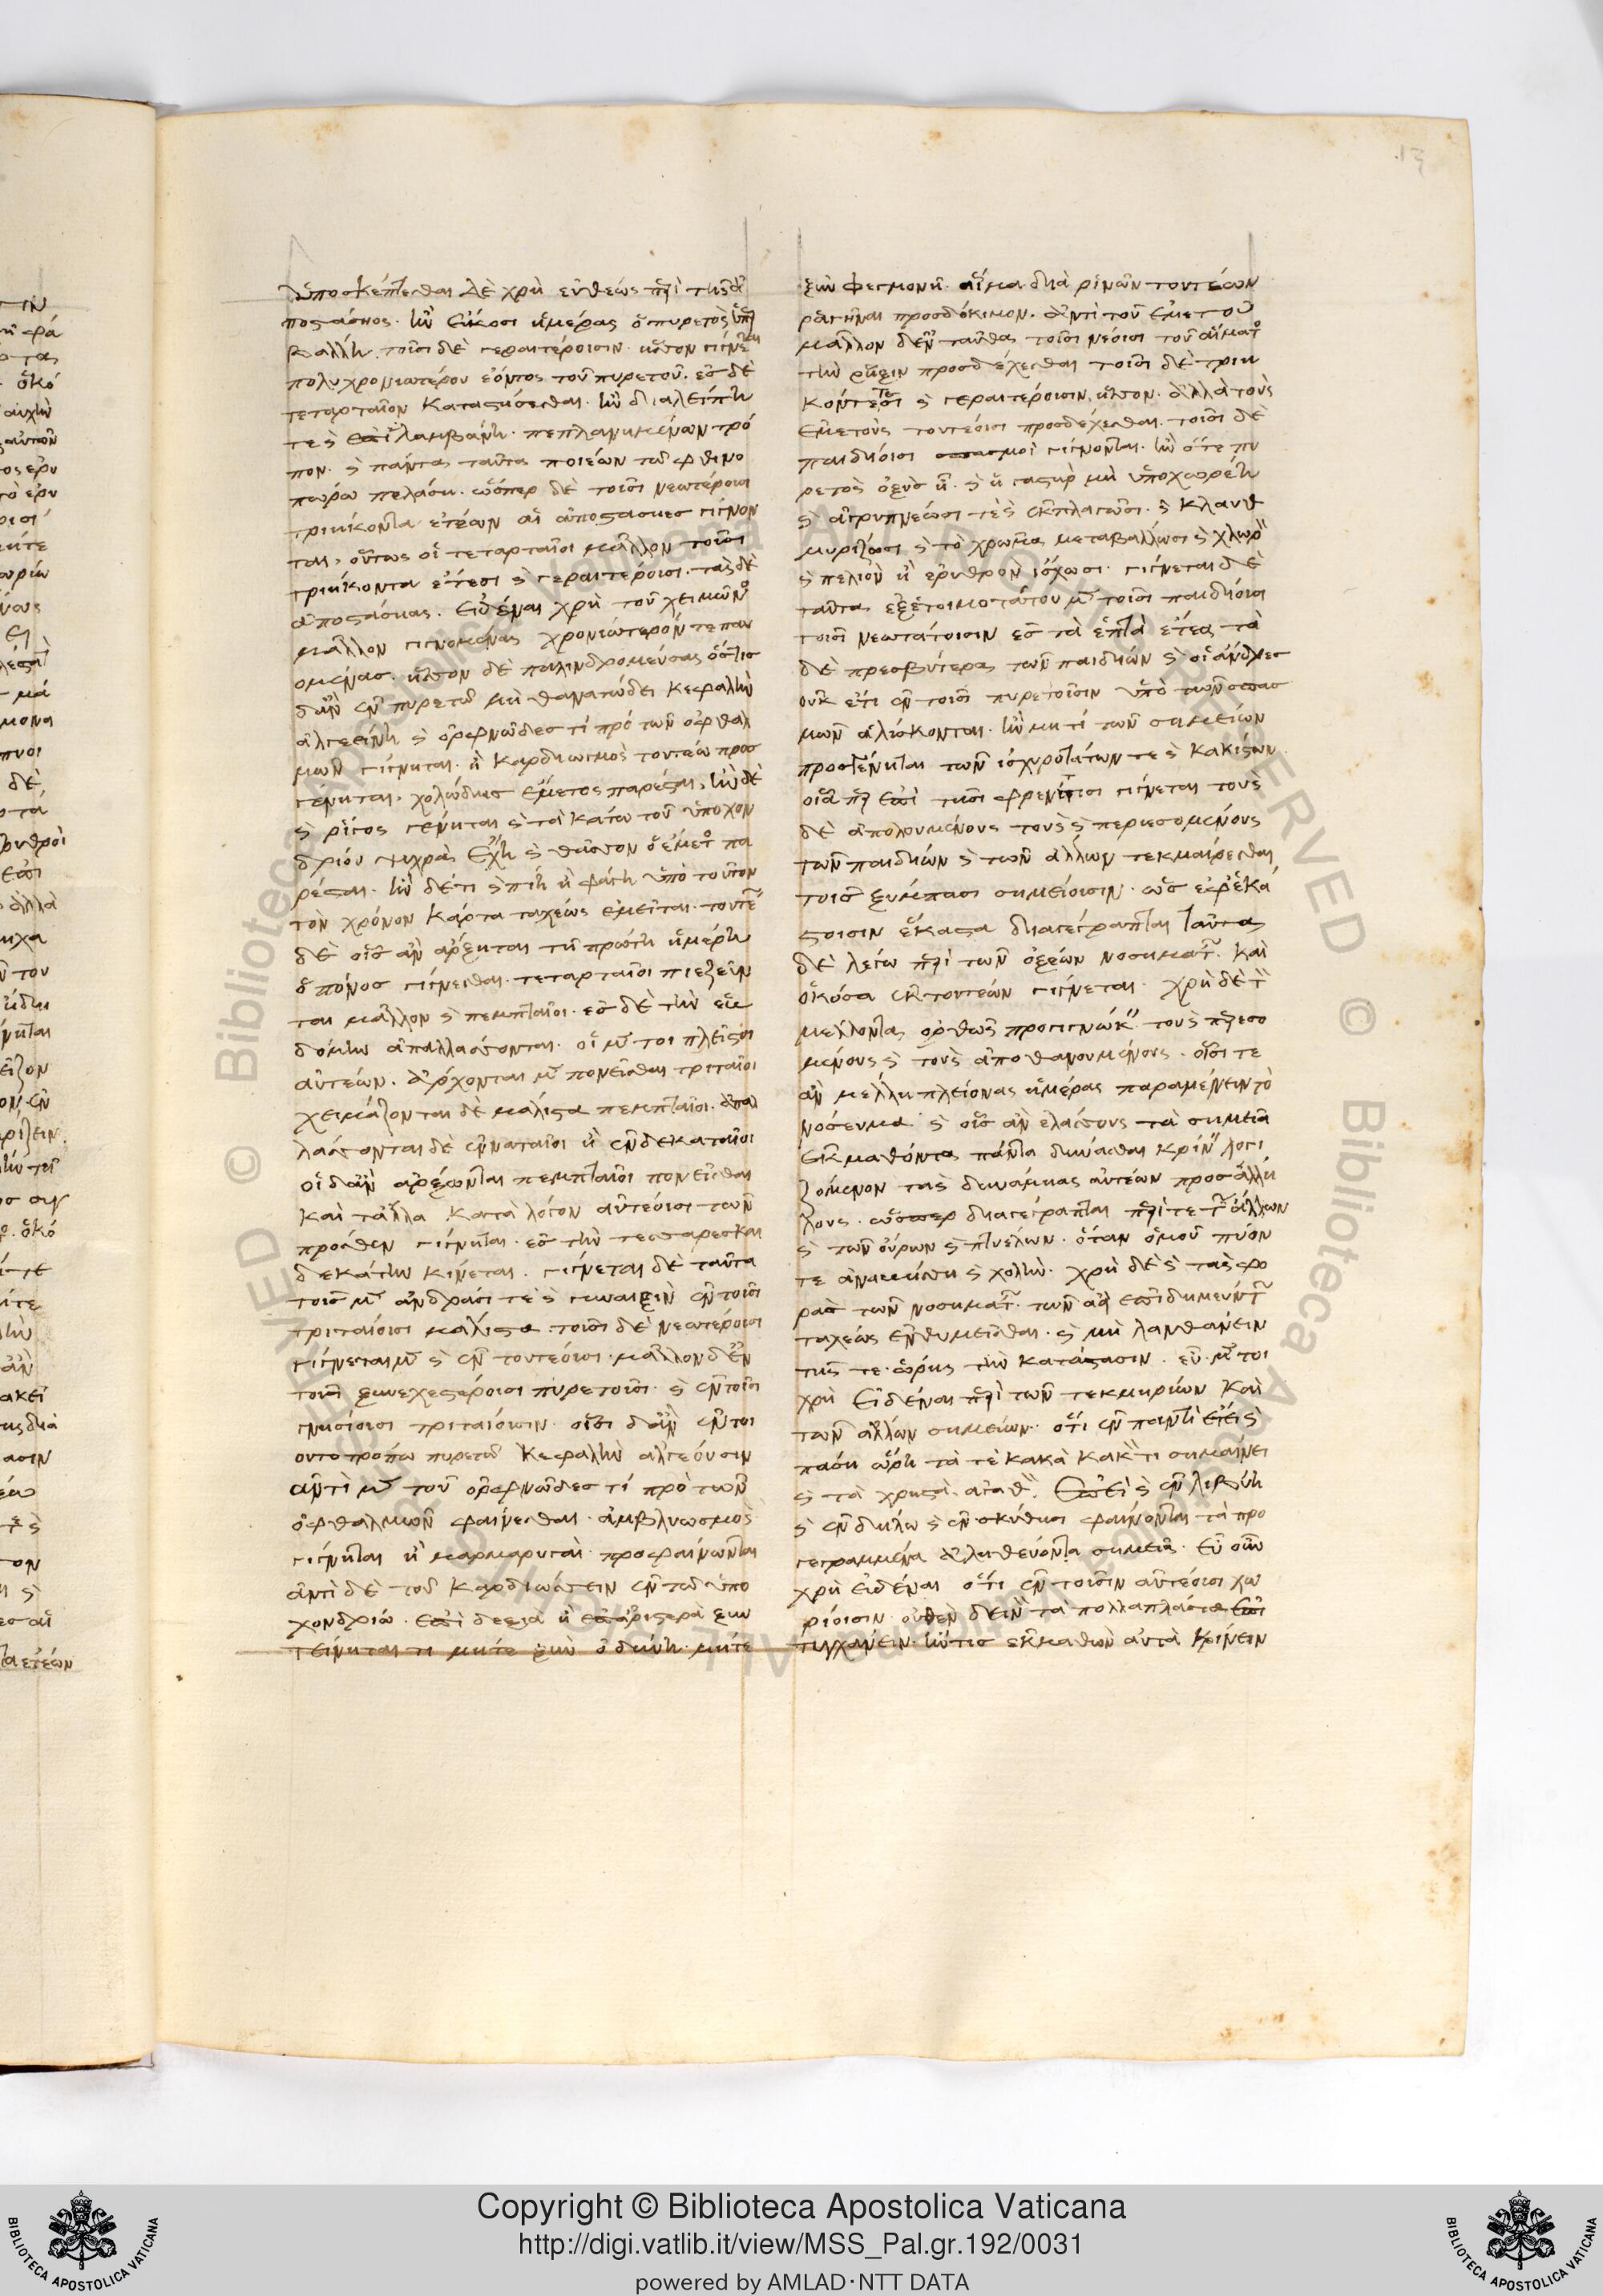 ὑποσκέπτεσθαι δὲ χρὴ εὐθέως περὶ τῆς ἀ
ποστάσηος· ἢν εἴκοσι ἡμέρας ὁ πυρετὸς ὑπερ
βάλλη. τοῖσι δὲ γεραιτέροισιν ἧσσον γίγνεται
πολυχρονιωτέρου ἐόντος τοῦ πυρετοῦ. ἐς δὲ
τεταρταῖον καταστήσεσθαι. ἢν διαλείπη
τε καὶ ἐπιλαμβάνη πεπλανημένον τρό
πον. καὶ πάντα ταῦτα ποιέων τῶ φθινο
πώρω πελάση. ὥσπερ δὲ τοῖσι νεωτέροισι
τριήκοντα ἐτέων αἱ ἀποστάσηες γίγνον
ται, οὕτως οἱ τεταρταῖοι μᾶλλον τοῖσι
τριήκοντα ἔτεσι καὶ γεραιτέροισι. τὰς δὲ
ἀποστάσηας. εἰδέναι χρὴ τοῦ χειμῶνος
μᾶλλον γιγνομένας χρονιώτερόν τε παυ
ομένας. ἧσσον δὲ παλινδρομεύσας ὅστις
δ᾽ ἂν ἐν πυρετῶ μὴ θανατώδει κεφαλὴν
ἀλγεείνη καὶ ὀρφνῶδές τί πρὸ τῶν ὀφθαλ
μῶν γίγνηται. ἢ καρδιωγμὸς τουτέω προσ
γένηται, χολώδης ἔμετος παρέσται, ἢν δὲ
καὶ ῥίγος γένηται καὶ τὰ κάτω τοῦ ὑποχον
δρίου ψυχρὰ ἔχη καὶ θᾶσσον ὁ ἔμετος πα
ρέσται. ἢν δέ τι καὶ πίη ἢ φάγη ὑπὸ τοῦτον
τὸν χρόνον κάρτα ταχέως ἐμεῖται. τουτέων
δὲ οἷσ ἂν ἄρξηται τῆ πρώτη ἡμέρη
ὁ πόνος γίγνεσθαι. τεταρταῖοι πιεζεῦν
ται μᾶλλον καὶ πεμπταῖοι. ἐς δὲ τὴν ἑβ
δόμην ἀπαλλάσσονται. οἱ μέντοι πλεῖστοι
αὐτέων. ἄρχονται μὲν πονεῖσθαι τριταῖοι
χειμάζονται δὲ μάλιστα πεμπταῖοι. ἀπαλ
λάσσονται δὲ ἐνναταῖοι ἢ ἑνδεκαταῖοι
οἳ δ᾽ ἂν ἄρξωνται πεμπταῖοι πονεῖσθαι
καὶ τἆλλα κατὰ λόγον αὐτέοισι τῶν
πρόσθεν γίγνηται. ἐς τὴν τεσσαρεσκαι
δεκάτην κρίνεται. γίγνεται δὲ ταῦτα
τοῖσ μὲν ἀνδράσι τε καὶ γυναιξὶν ἐν τοῖσι
τριταίοισι μάλιστα. τοῖσι δὲ νεωτέροισι
γίγνεται μὲν καὶ ἐν τουτέοισι. μᾶλλον δ᾽ ἐν
τοῖσι ξυνεχεστέροισι πυρετοῖσι καὶ ἐν τοῖσι
γνησίοισι τριταίοισιν οἷσι δ᾽ ἂν ἐν τοι
ουτοτρόπω πυρετῶ κεφαλὴν ἀλγέουσιν
ἀντὶ μὲν τοῦ ὀρφνῶδές τί πρὸ τῶν
ὀφθαλμῶν φαίνεσθαι. ἀμβλυωσμὸς
γίγνηται ἢ μαρμαρυγαὶ προσφαίνωνται
ἀντὶ δὲ τοῦ καρδιώσσειν ἐν τῶ ὑπο
χονδρίω. ἐπὶ δεξιὰ ἢ ἐπ᾽ ἀριστερὰ ξυν
τείνηταί τι μήτε ξὺν ὀδύνη μήτε
ξὺν φλεγμονῆ. αἷμα διὰ ῥινῶν τουτέων
ῥαγῆναι προσδόκιμον. ἀντὶ τοῦ ἐμέτου
μᾶλλον δ᾽ ἐνταῦθα τοῖσι νέοισι τοῦ αἵματος
τὴν ῥῆξιν προσδέχεσθαι τοῖσι δὲ τριη
κοντέτεσι καὶ γεραιτέροισιν ἧσσον. ἀλλὰ τοὺς
ἐμέτους τουτέοισι προσδέχεσθαι. τοῖσι δὲ
παιδίοισι σπασμοὶ γίγνονται. ἢν ὅτε πυ
ρετὸς ὀξὺς ἦ. καὶ ἡ γαστὴρ μὴ ὑποχωρέη
καὶ ἀγρυπνέωσί τε καὶ ἐκπλαγῶσι. καὶ κλαυθ
μυρίζωσι καὶ τὸ χρῶμα μεταβάλλωσι καὶ χλωρὸν
καὶ πελιὸν ἢ ἐρυθρὸν ἴσχωσι. γίγνεται δὲ
ταῦτα ἐξ ἑτοιμοτάτου μὲν τοῖσι παιδίοισι
τοῖσι νεωτάτοισιν ἐς τὰ ἑπτὰ ἔτεα τὰ
δὲ πρεσβύτερα τῶν παιδίων καὶ οἱ ἄνδρες
οὐκ ἔτι ἐν τοῖσι πυρετοῖσιν ὑπὸ τῶν σπασ
μῶν ἁλίσκονται. ἢν μή τί τῶν σημείων
προσγένηται τῶν ἰσχυροτάτων τε καὶ κακίστων
οἷάπερ ἐπὶ τῆσι φρενίτισι γίγνεται τοὺς
δὲ ἀπολουμένους τοὺς καὶ περιεσομένους
τῶν παιδίων καὶ τῶν ἄλλων τεκμαίρεσθαι
τοῖσ ξύμπασι σημείοισιν. ὡς ἐφ᾽ ἑκά
στοισιν ἕκαστα διαγέγραπται ταῦτα
δὲ λέγω περὶ τῶν ὀξέων νοσημάτων. καὶ
ὁκόσα ἐκ τουτέων γίγνεται. χρὴ δὲ τὸν
μέλλοντα ὀρθῶς προγιγνώσκειν τοὺς περιεσο
μένους καὶ τοὺς ἀποθανουμένους. οἷσί τε
ἂν μέλλη πλείονας ἡμέρας παραμένειν τὸ
νόσευμα καὶ οἷσ ἂν ἐλάσσους τὰ σημεῖα
ἐκμαθόντα πάντα δύνασθαι κρίνειν λογι
ζόμενον τὰς δυνάμιας αὐτέων προς ἀλλή
λους. ὥσπερ διαγέγραπται περί τε τῶν ἄλλων
καὶ τῶν οὔρων καὶ πτυέλων. ὅταν ὁμοῦ πύόν
τε ἀναβήσση καὶ χολήν. χρὴ δὲ καὶ τὰς φο
ρὰς τῶν νοσημάτων τῶν αἰεὶ ἐπιδημεύντων
ταχέως ἐνθυμεῖσθαι. καὶ μὴ λανθάνειν
τῆς τε ὥρης τὴν κατάστασιν. εὖ μέντοι
χρὴ εἰδέναι περὶ τῶν τεκμηρίων καὶ
τῶν ἄλλων σημείων. ὅτι ἐν παντὶ ἔτει καὶ
πάση ὥρη τά τε κακὰ κακόν τι σημαίνει
καὶ τὰ χρηστὰ ἀγαθόν. ἐπεὶ καὶ ἐν λιβύη
καὶ ἐν δήλω καὶ ἐν σκύθησι φαίνονται τὰ προ
γεγραμμένα ἀληθεύοντα σημεῖα. εὖ οὖν
χρὴ εἰδέναι ὅτι ἐν τοῖσιν αὐτέοισι χω
ρίοισιν οὐθὲν δεινὸν τὰ πολλαπλάσια ἐπι
τυγχάνειν. ἤν τις ἐκμαθὼν αὐτὰ κρίνειν
Copyright © Biblioteca Apostolica Vaticana
http://digi.vatlib.it/view/MSS_Pal.gr.192/0031
powered by AMLAD·NTT DATA